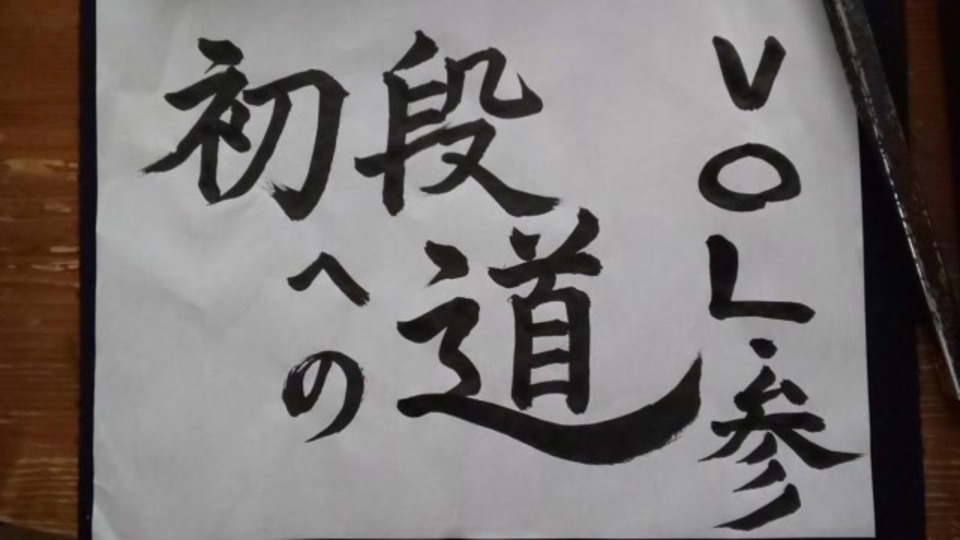 初段
への道
VOL.参